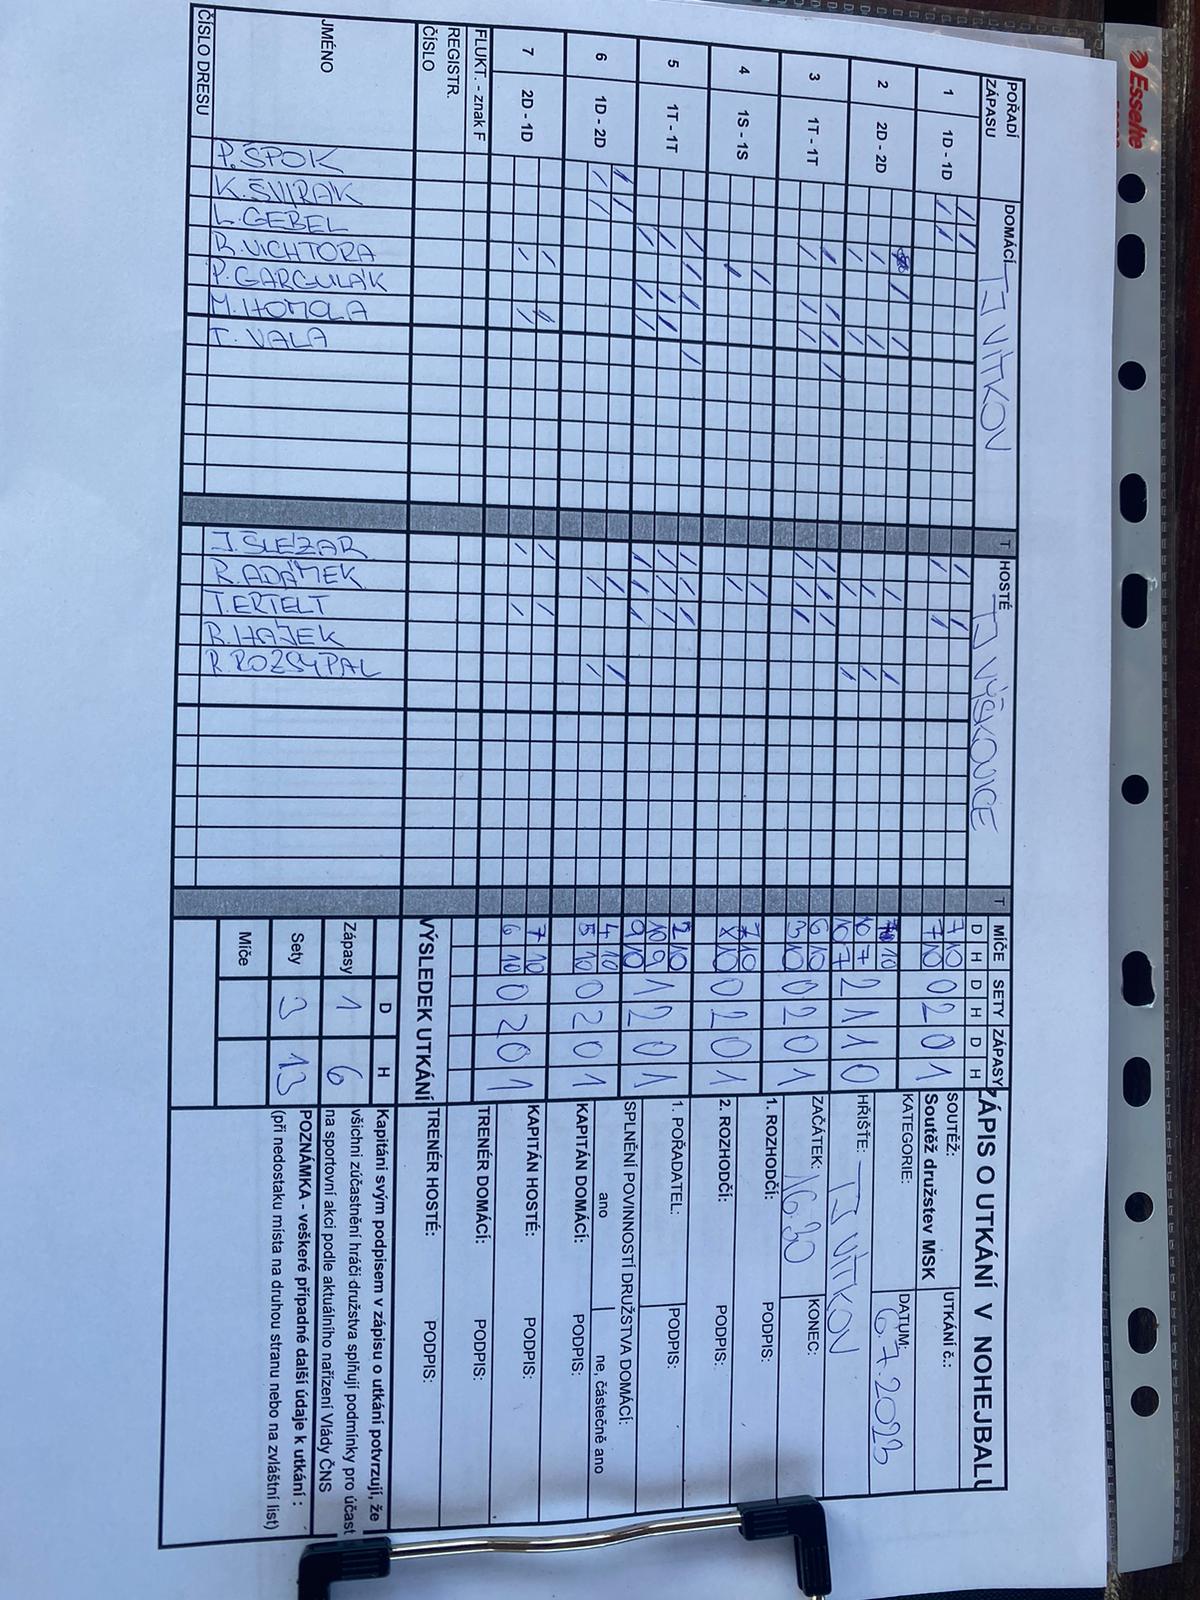 Esselte
ZÁPIS O UTKÁNÍ V NOHEJBALU
SOUTĚŽ:
Soutěž družstev MSK
UTKÁNÍ č.:
KATEGORIE:
DATUM:
6.7.2023
HŘIŠTE: TJ VÍTKOV
ZAČÁTEK: 16:30
KONEC:
1. ROZHODČÍ: PODPIS:
2. ROZHODČÍ: PODPIS:
1. POŘADATEL: PODPIS:
SPLNĚNÍ POVINNOSTÍ DRUŽSTVA DOMÁCÍ:
ano ne, částečně ano
KAPITÁN DOMÁCÍ: PODPIS:
KAPITÁN HOSTÉ: PODPIS:
TRENÉR DOMÁCÍ: PODPIS:
TRENÉR HOSTÉ: PODPIS:
Kapitáni svým podpisem v zápisu o utkání potvrzují, že
všichni zúčastnění hráči družstva splňují podmínky pro účast
na sportovní akci podle aktuálního nařízení Vlády ČNS
POZNÁMKA - veškeré případné další údaje k utkání :
(při nedostaku místa na druhou stranu nebo na zvláštní list)
POŘADÍ ZÁPASU
DOMÁCÍ TJ VÍTKOV T
HOSTÉ TJ VÝŠKOVICE T
MÍČE SETY ZÁPASY
D H D H D H
1 1D - 1D 7 10 7 10 0 2 0 1
2 2D - 2D 10 10 7 10 7 2 1 1 0
3 1T - 1T 6 10 3 10 0 2 0 1
4 1S - 1S 7 10 10 0 2 0 1
5 1T - 1T 2 10 10 9 9 10 1 2 0 1
6 1D - 2D 4 10 5 10 0 2 0 1
7 2D - 1D 7 10 6 10 0 2 0 1
FLUKT. - znak F
REGISTR. ČÍSLO
JMÉNO
ČÍSLO DRESU
P. ŠPOK
K. ŠVIRÁK
L. GEBEL
R. VICHTORA
P. GARGULÁK
M. HOMOLA
T. VALA
J. SLEZAR
R. ADÁMEK
T. ERTELT
R. HÁJEK
R. ROZSYPAL
VÝSLEDEK UTKÁNÍ
D H
Zápasy 1 6
Sety 3 13
Míče